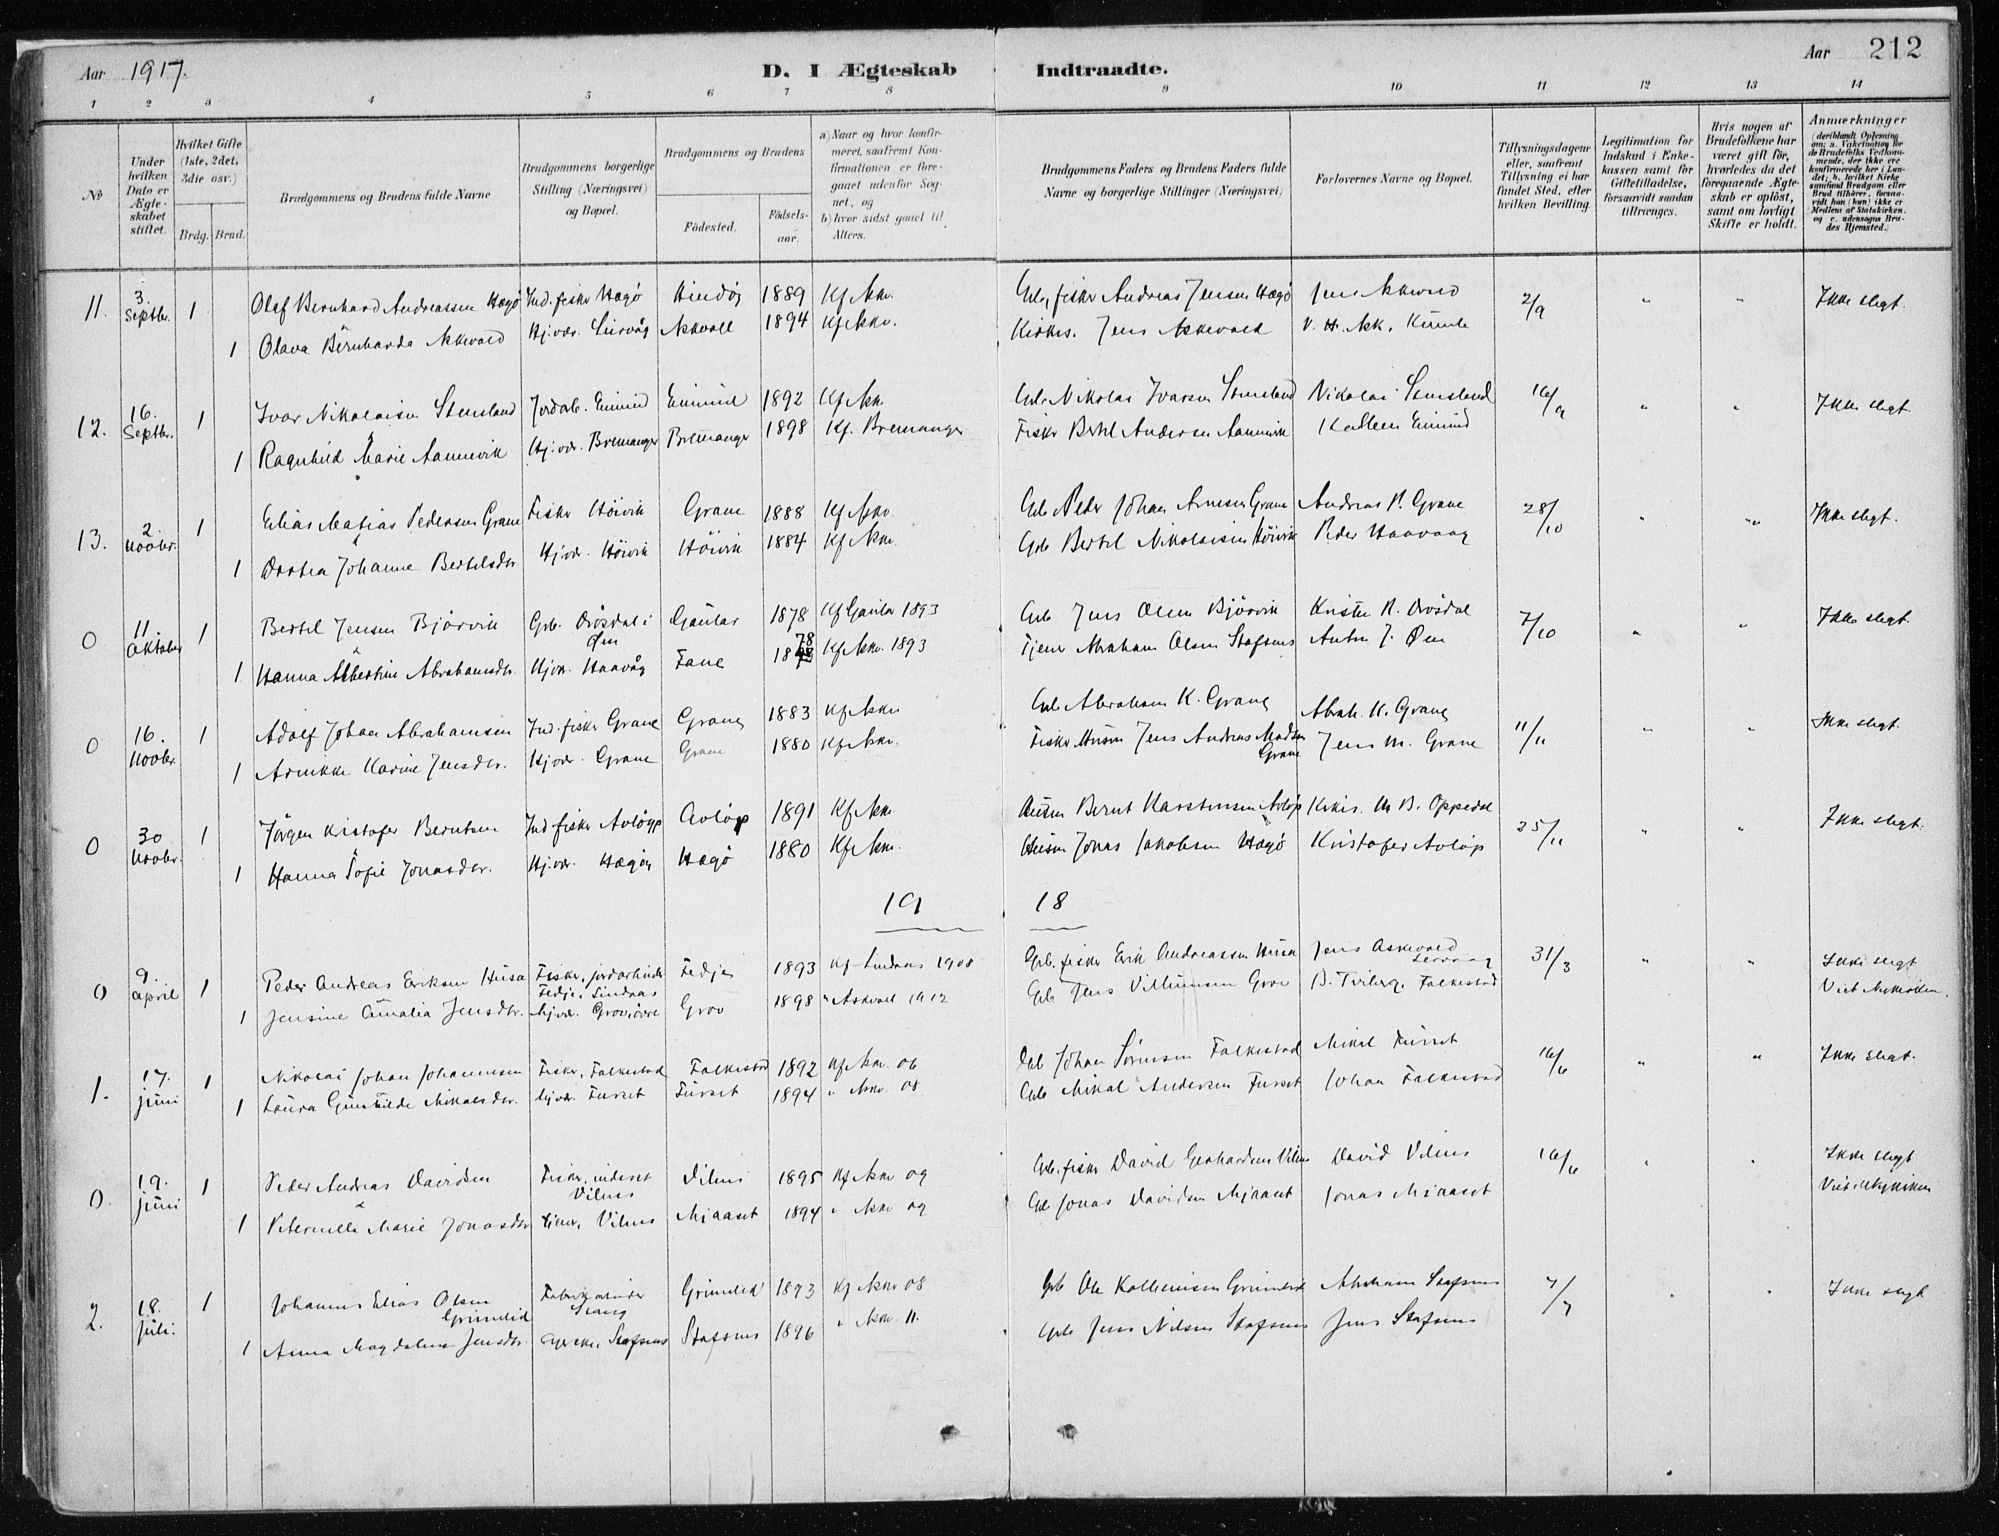 Aar 1917.
D. I Ægteskab Indtraadte.
Aar 212
1 2 3 4 5 6 7 8 9 10 11 12 13 14
No
Under hvilken Dato er Ægteskabet stiftet.
Hvilket Gifte (1ste, 2det, 3die osv.)
Brdg. Brud.
Brudgommens og Brudens fulde Navne
Brudgommens borgerlige Stilling (Næringsvei) og Bopæl.
Brudgommens og Brudens
Fødested.
Fødselsaar.
a) Naar og hvor konfirmeret, saafremt Konfirmationen er foregaaet udenfor Sognet, og
b) hvor sidst gaaet til Alters.
Brudgommens Faders og Brudens Faders fulde Navne og borgerlige Stillinger (Næringsvei)
Forlovernes Navne og Bopæl.
Tillysningsdagene eller, saafremt Tillysning ei har fundet Sted, efter hvilken Bevilling.
Legitimation for Indskud i Enkekassen samt for Giftetilladelse, forsaavidt saadan tiltrænges.
Hvis nogen af Brudefolkene har været gift før, hvorledes da det foregaaende Ægteskab er opløst, samt om lovligt Skifte er holdt.
Anmærkninger
(deriblandt Oplysning om: a. Vakcination for de Brudefolks Vedkommende, der ikke ere konfirmerede her i Landet; b. hvilket Kirkesamfund Brudgom eller Brud tilhører, forsaavidt han (hun) ikke er Medlem af Statskirken, og c. udensogns Brudes Hjemsted.)
11. 3. Septbr. 1 Olaf Bernhard Andreassen Hægø Ind. fisker Hægø Hindøy 1889 Kf Askv. Gbr, fisker Andreas Jensen Hægø Jens Askevold 2/9 " " Ikke slegt.
1 Olava Bernharda Askvold Hj.vær. Askvoll 1894 Kf Askv. Kirkes. Jens Askevold
12. 16. Septbr. 1 Ivar Nikolaisen Stensland 1892 Kf Askv. Gbr. Nikolai Ivarsen Stensland Nikolai Stensland 16/9 " " Ikke slegt.
1 Ragnhild Marie Hj.vær. Bremanger Bremanger 1898 Kf. Bremanger Fisker Bertel Andersen
13. 2 Novbr. 1 Elias Matias Pedersen Grane Fisker Høivik Grane 1888 Kf Askv. Gbr Peder Johan Arnesen Grane Andreas P. Grane 28/10 " " Ikke slegt.
1 Dortea Johanne Bertelsdtr. Hj.vær. Høivik Høivik 1884 Kf Askv. Gbr Bertel Nikolaisen Høivik Peder Haavaag
0 11 Oktober 1 Bertel Jensen Bjørvik Gbr. Drøsdal i Øen Gaular 1878 Kf Gaular 1893 Gbr Jens Olsen Bjørvik Krister R. Drøsdal 7/10 " " Ikke slegt.
1 Hanna Albertine Abrahamsdtr. Hj.vær. Haavåg Fane 1878 Kf Askv. 1893 Tjener Abraham Olsen Stafsnes Anton J. Øen
0 16. Novbr. 1 Adolf Johan Abrahamsen Ind. fisker Grane Grane 1883 Kf Askv. Gbr Abraham K. Grane Abrah. K. Grane 11/11 " " Ikke slegt.
1 Arnikke Karine Jensdtr. Hj.vær. Grane Grane 1880 Kf Askv. Fisker Husm Jens Andreas Madsen Grane Jens M. Grane
0 30 Novbr. 1 Jørgen Kristofer Berntsen Ind fisker Avløyp Avløp 1891 Kf Askv. Husm Bernt Karstensen Avløp Kirkes. M B. Oppedal 25/11 " " Ikke slegt.
1 Hanna Sofie Jonasdtr. Hj.vær. Hægøy Hægø 1880 Kf Askv. Husm Jonas Jakobsen Hægø Kristofer Avløp
19 18
0 9. april 1 Peder Andreas Eriksen Husa Fisker, jordarbeider Fedje, Lindaas Fedje 1893 Kf Lindaas 1908 Gbr. fisker Erik Andreassen Husa Jens Askevold 31/3 " " Ikke slegt
1 Jensine Amalia Jensdtr. hj.vær. Grov 1898 " Askvoll 1912 Gbr Jens Grov Falkestad
1. 17. juni 1 Nikolai Johan Johannesen Fisker, Falkestad Falkestad 1892 Kf Askv. 06 Gbr Johan Sørensen Falkestad Mikal Furset 16/6 " " Ikke slegt.
1 Laura Gunhilde Mikalsdtr. hj.vær. Furset Furset 1894 " Askv. 08 Gbr Mikal Andersen Furset Johan Falkestad
0. 19. juni 1 Peder Andreas Davidsen Fisker, inderst Vilnes Vilnes 1895 Kf Askv 09 Gbr. fisker David Gerhardsen Vilnes David Vilnes 16/6 " " Ikke slegt
1 Peternilla Marie Jonasdtr Tjener, Vilnes Mjaaset 1894 " Askv 09 Gbr Jonas Davidsen Mjaaset Jonas Mjaaset
2. 18. juli. 1 Johannes Elias Olsen Grimelid Fabrikarbeider Stang Grimelid 1893 Kf Askv 08 Gbr Ole Grimelid Abraham Stafsnes 7/7 " " Ikke slegt
1 Anna Magdalena Jensdtr. Stafsnes Stafsnes 1896 " Askv. 11. Gbr Jens Nilsen Stafsnes Jens Stafsnes